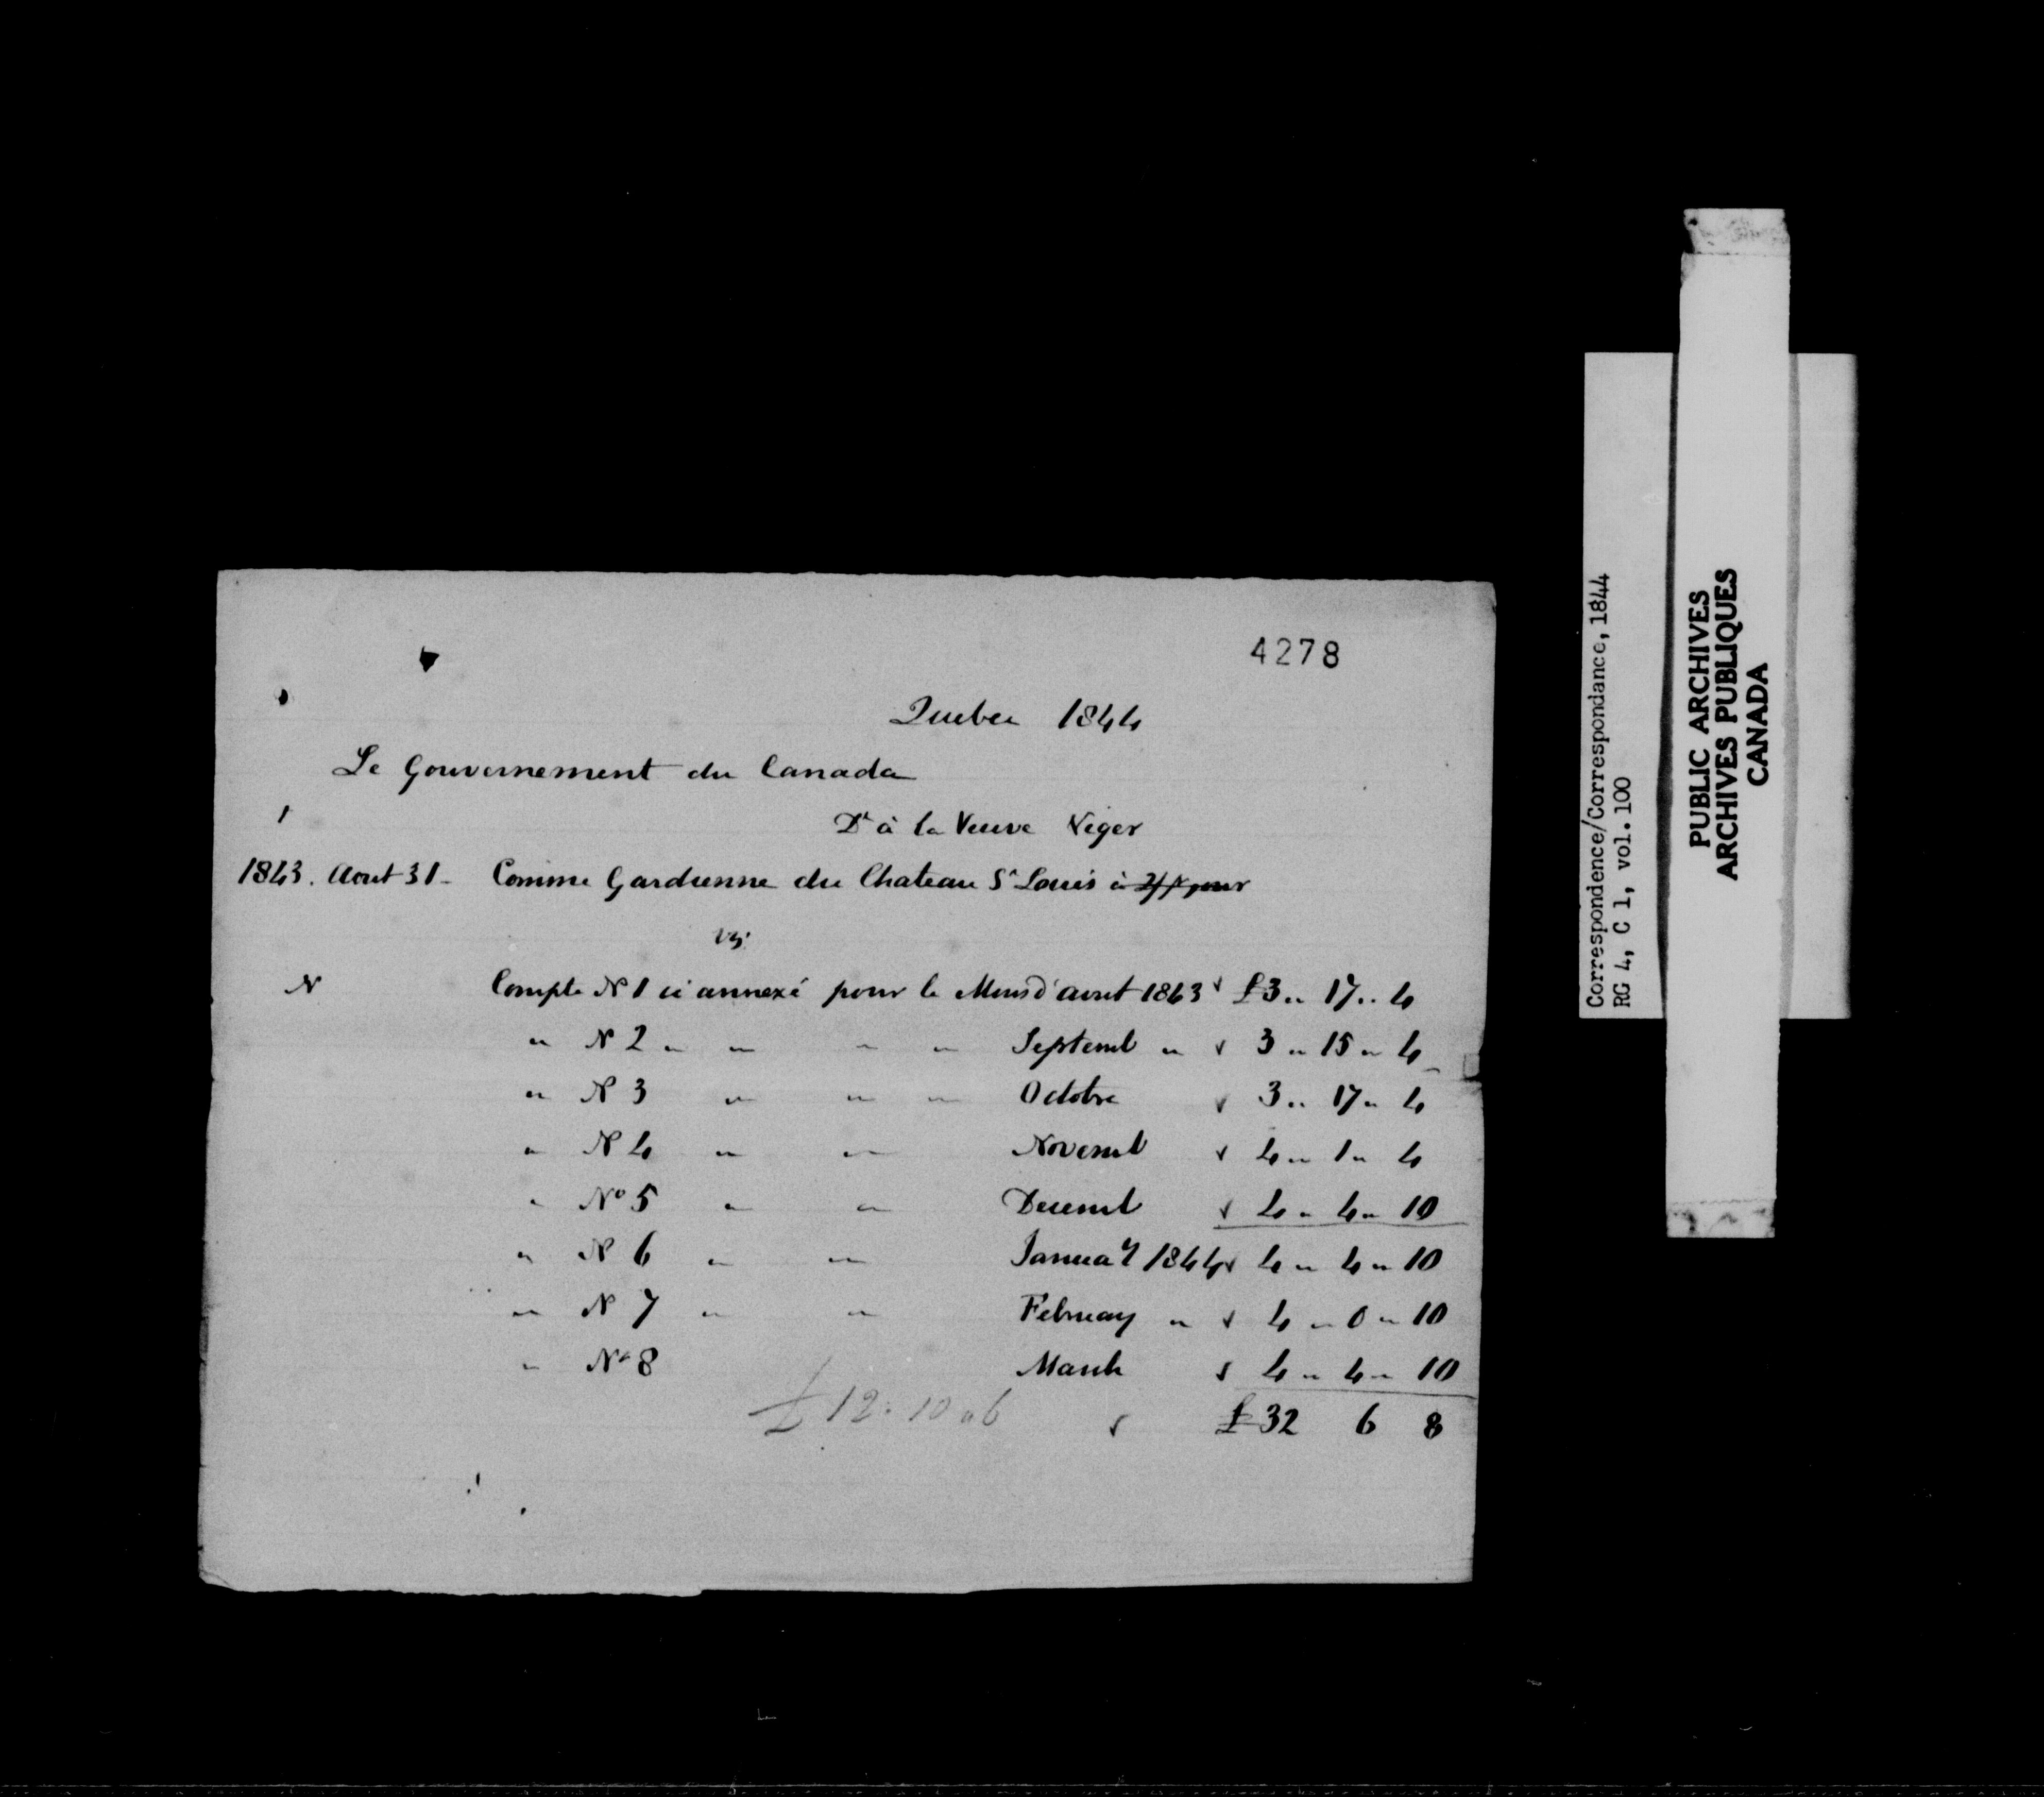 4278
Quebec 1844
Le Gouvernement du Canada
Dr à la Veuve Neger
1843. Aout 31 - Comme Gardienne du Chateau St Louis à 2/ p jour
viz
N Compte N 1 ci annexé pour le Mois d'aout 1843 £3 .. 17 .. 4
" N 2 " " " " Septemb " 3 " 15 " 4
" N 3 " " " Octobre 3 .. 17 " 4
" N 4 " " Novemb 4 " 1 " 4
" No 5 " " Decemb 4 " 4 " 10
" N 6 " " Januay 1844 4 " 4 " 10
" N 7 " " Februay " 4 " 0 " 10
" No 8 March 4 " 4 " 10
£ 12 . 10 " 6 £ 32 6 8
Correspondence/Correspondance, 1844
RG 4, C 1, vol. 100
PUBLIC ARCHIVES
ARCHIVES PUBLIQUES
CANADA